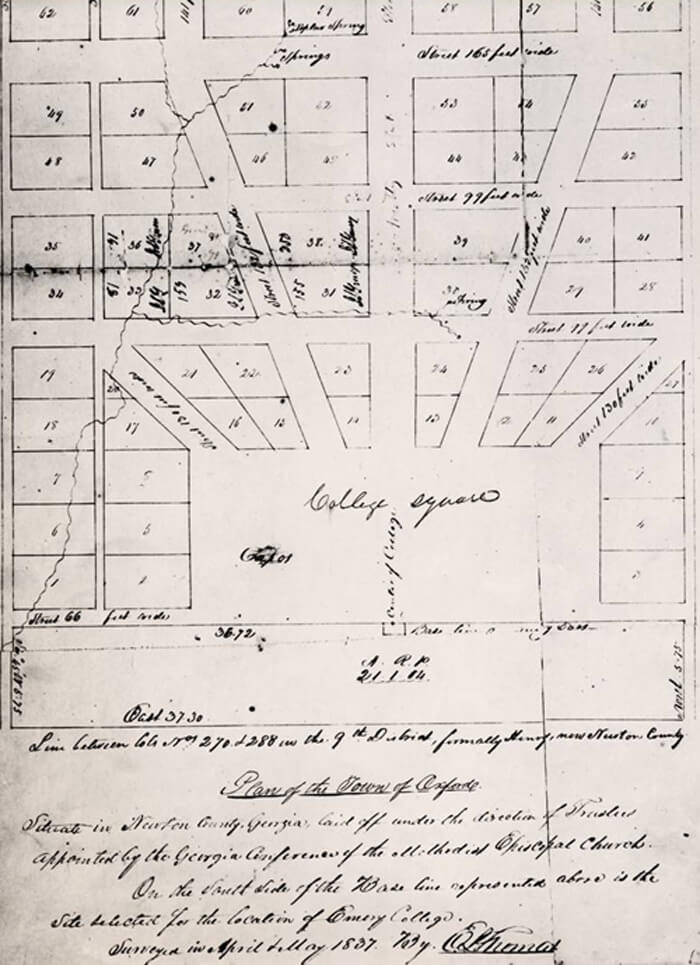 62 61 60 59 58 57 56
Spring
Springs
Street 165 feet wide
49 50 51 52 53 54 55
48 47 46 45 44 43 42
Street 99 feet wide
35 36 37 38 39 40 41
Street 132 feet wide
Street 132 feet wide
34 33 153 32 155 31 30 29 28
Spring
Street 99 feet wide
19 20 21 22 23 24 25 26 27
Street 130 feet wide
Street 130 feet wide
18 17 16 15 14 13 12 11
7
College Square
Center of College
6 5 4
1 2 3
Street 66 feet wide
36.72
Base line
A. R. P.
21.1.04.
West 5.75
East 37.30
Line between lots Nos 270 & 288 in the 9th District, formally Henry, now Newton County
Plan of the Town of Oxford.
Situate in Newton County, Georgia, laid off under the direction of Trustees
appointed by the Georgia Conference of the Methodist Episcopal Church.
On the South Side of the Base line represented above is the
Site selected for the location of Emory College.
Surveyed in April & May 1837. By. E L Thomas